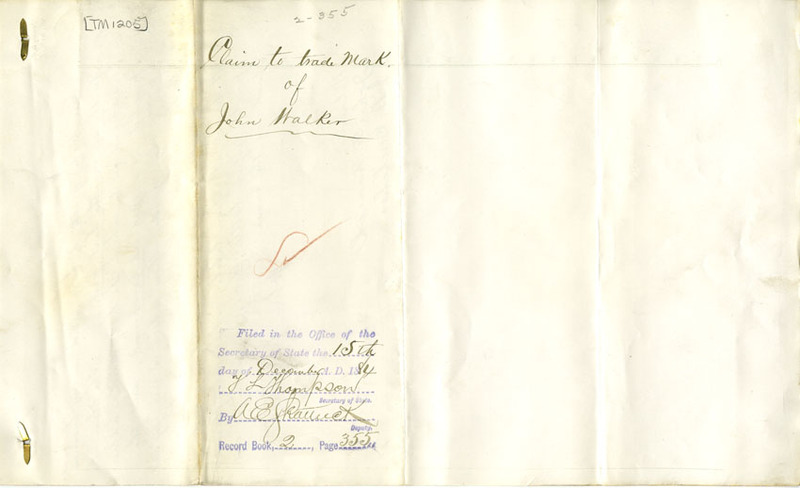 [TM1205]
2-355
Claim to trade Mark.
of
John Walker
Filed in the Office of the
Secretary of State the 15th
day of December A. D. 1884
T L Thompson
Secretary of State.
By A E Shattuck
Deputy.
Record Book, 2, Page 355